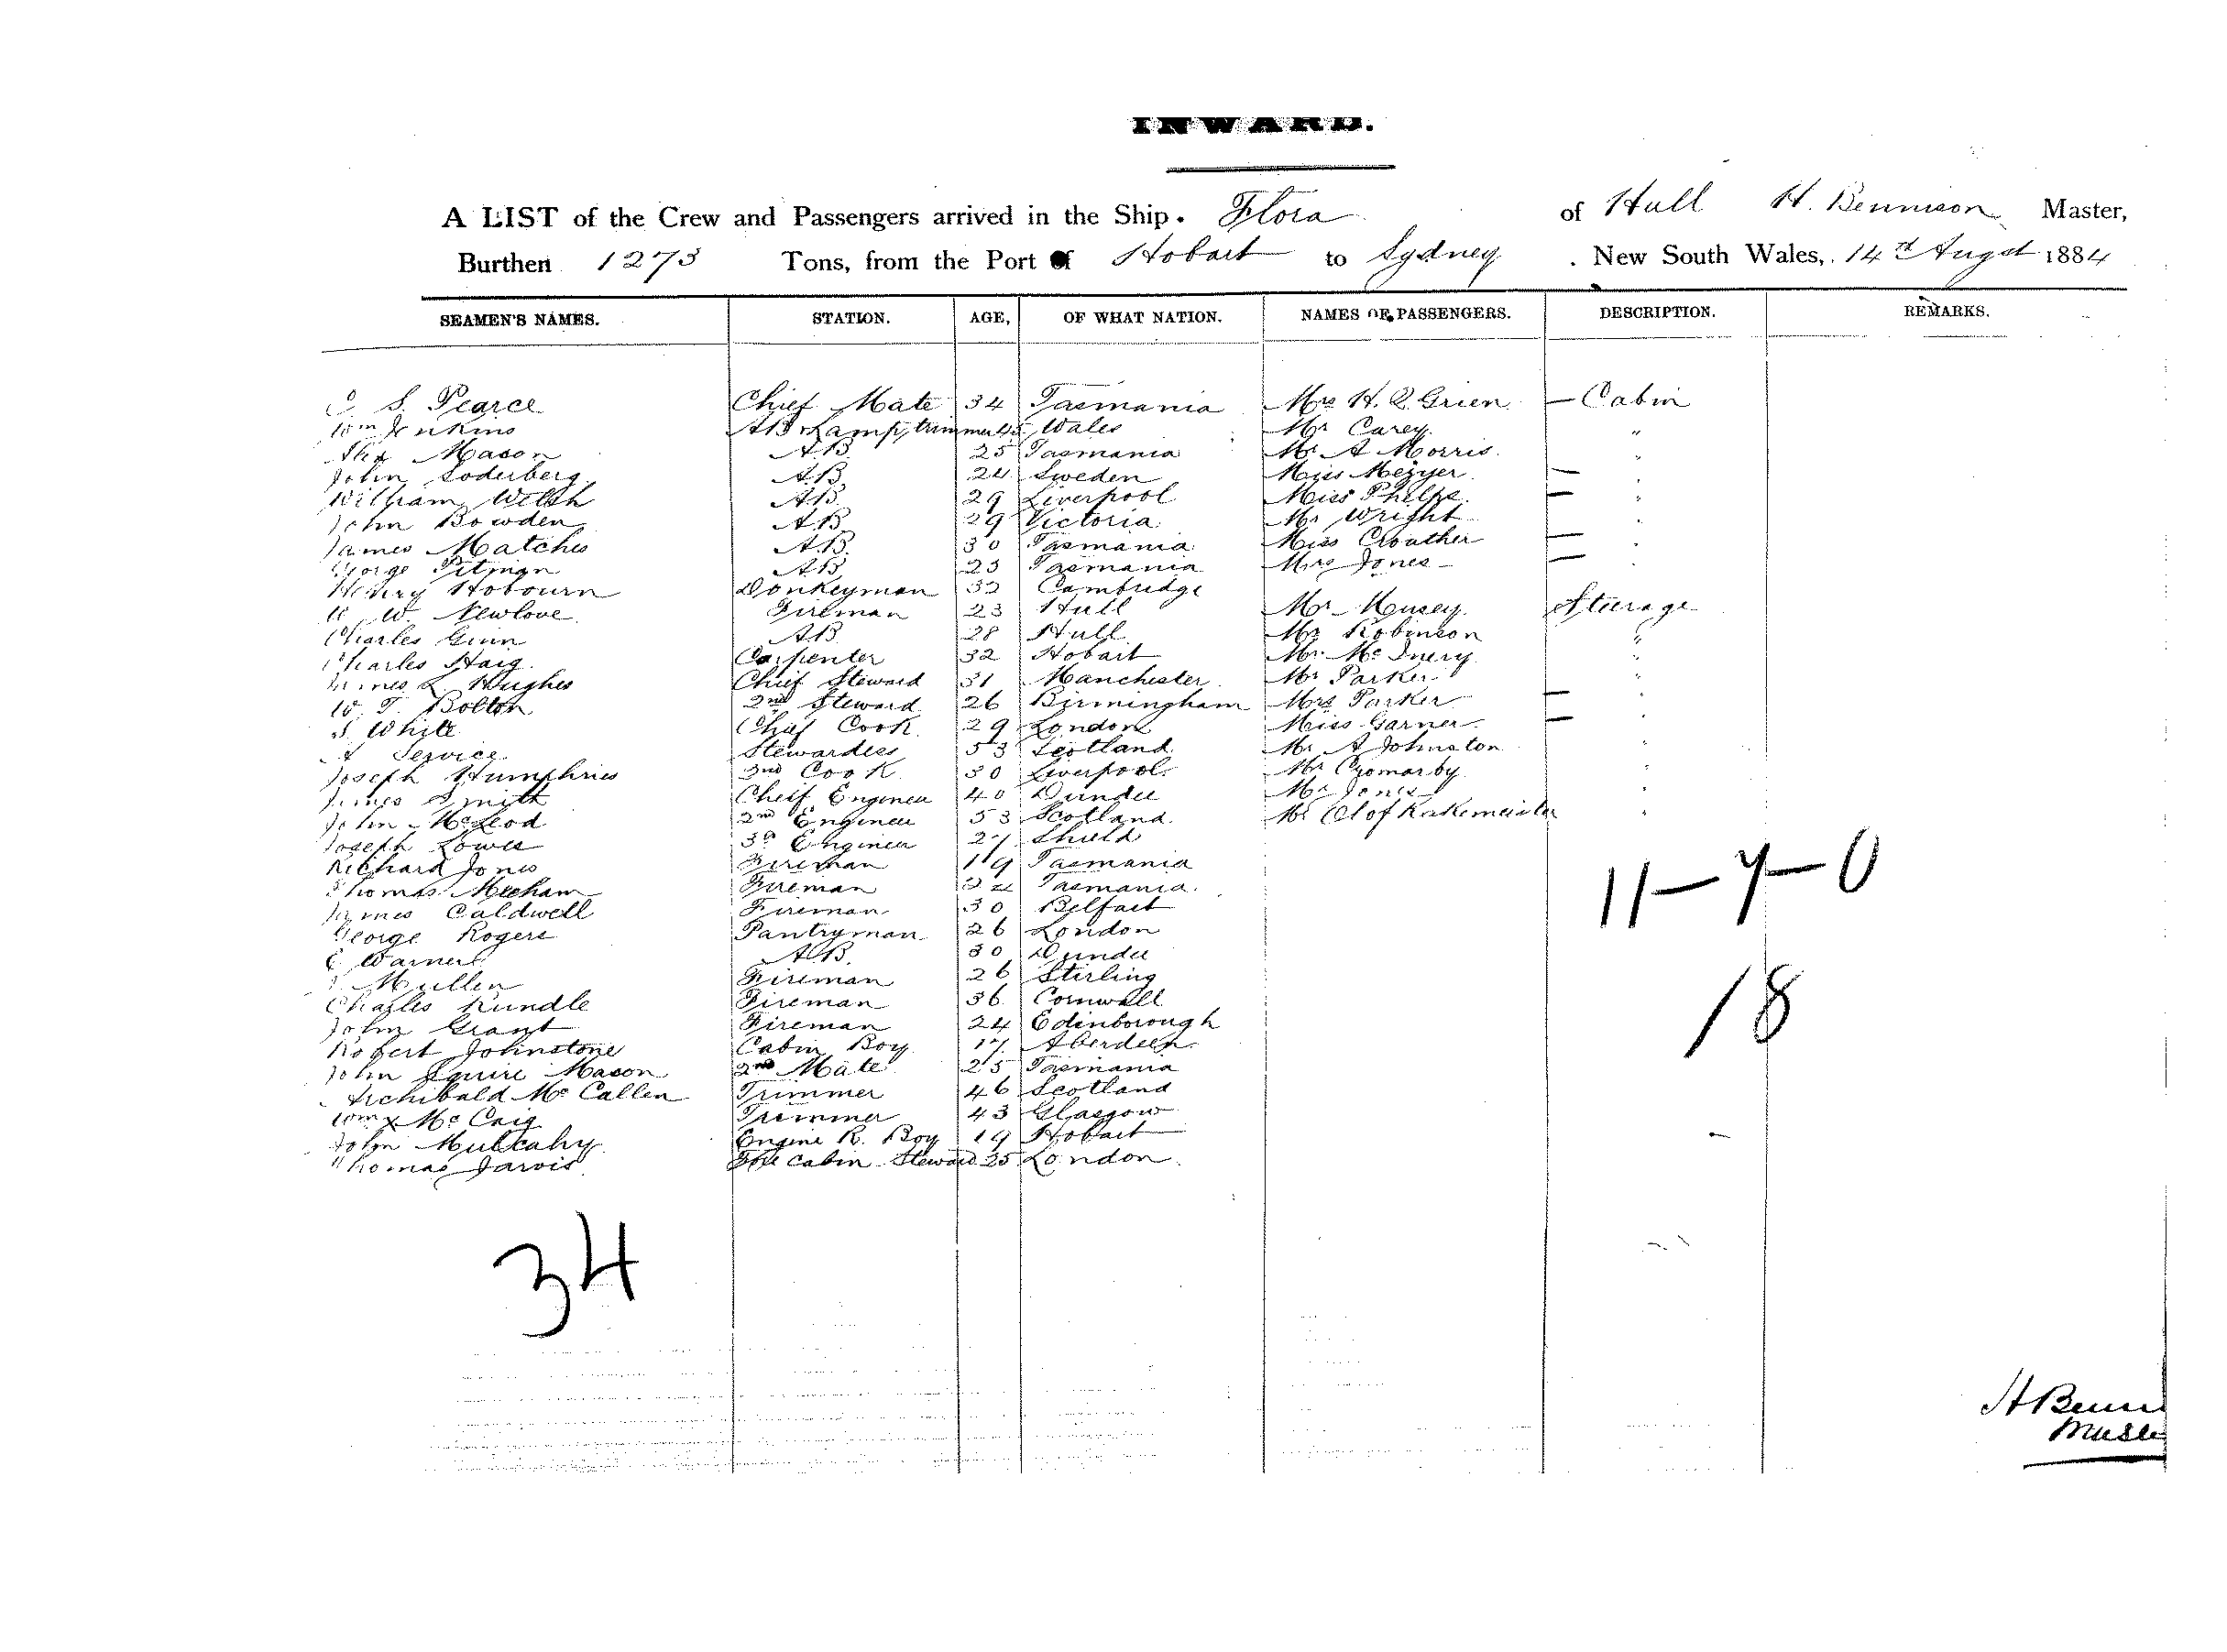 INWARD.
A LIST of the Crew and Passengers arrived in the Ship. Flora of Hull H. Bennison Master,
Burthen 1273 Tons, from the Port of Hobart to Sydney . New South Wales, 14th Augst 1884
SEAMEN'S NAMES. STATION. AGE, OF WHAT NATION. NAMES OF PASSENGERS. DESCRIPTION. REMARKS.
S. Pearce Chief Mate 34 Tasmania Mrs H. Grien — Cabin
Wm Jenkins AB & Lamp trimmer 45 Wales Mr Carey "
Mason A.B. 25 Tasmania Mr A Morris. "
John Soderberg A.B. 24 Sweden Miss Mezyer — "
William Welsh A.B. 29 Liverpool Miss Phelps — "
John Bowden A.B. 29 Victoria Mr Wright "
James Matches A.B. 30 Tasmania Miss Crouther — "
George Pitman A.B. 23 Tasmania Mrs Jones — "
Henry Hobourn Donkeyman 32 Cambridge
W. Newlove Fireman 23 Hull Mr Steerage
Charles Ginn A.B. 28 Hull Mr Robinson "
Charles Haig. Carpenter 32 Hobart Mr "
James L. Hughes Chief Steward 31 Manchester Mr Parker "
W. T. Bolton 2nd Steward 26 Birmingham Mrs Parker — "
S. White Chief Cook 29 London Miss Garner — "
A Service Stewardess 53 Scotland Mr A Johnston "
Joseph Humphries 2nd Cook 30 Liverpool Mr Cromarby "
James Smith Cheif Engineer 40 Dundee Mr Jones "
John McLeod 2nd Engineer 53 Scotland Mr Olof "
Joseph Lowes 3d Engineer 27 Shield
Richard Jones Fireman 19 Tasmania
Thomas Meeham Fireman 22 Tasmania
James Caldwell Fireman 30 Belfast
George Rogers Pantryman 26 London
Warner A.B. 30 Dundee
Mullen Fireman 26 Stirling
Charles Rundle Fireman 36 Cornwall
John Grant Fireman 24 Edinborough
Robert Johnstone Cabin Boy 17 Aberdeen
John Squire Mason 2nd Mate 25 Tasmania
Archibald Mc Callen Trimmer 46 Scotland
Wm x Mc Caig Tremmer 43 Glasgow
John Mulcahy Engine R. Boy 19 Hobart
Thomas Jarvis Fore cabin Steward 25 London
11 — 7 — 0
18
34
H Benn